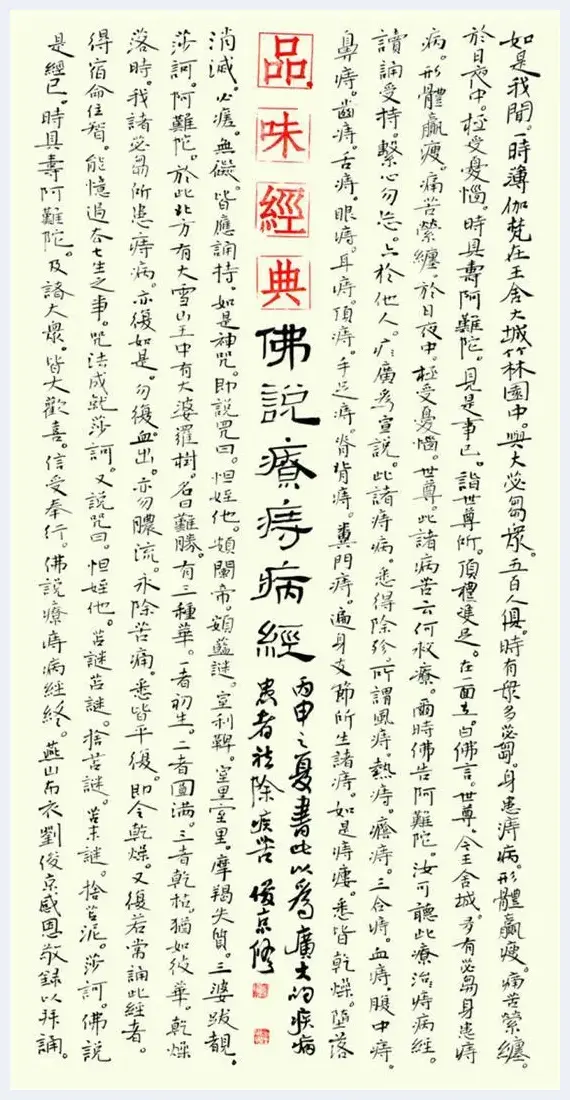 如是我聞。一時薄伽梵在王舍大城竹林園中。與大苾芻眾。五百人俱。時有眾多苾芻。身患痔病。形體羸瘦。痛苦縈纏。
於日夜中。極受憂惱。時具壽阿難陀。見是事已。詣世尊所。頂禮雙足。在一面立。白佛言。世尊。今王舍城。多有苾芻身患痔
病。形體羸瘦。痛苦縈纏。於日夜中。極受憂惱。世尊。此諸病苦云何救療。爾時佛告阿難陀。汝可聽此療治痔病經。
讀誦受持。繫心勿忘。亦於他人。廣為宣說。此諸痔病。悉得除殄。所謂風痔。熱痔。癊痔。三合痔。血痔。腹中痔。
鼻痔。齒痔。舌痔。眼痔。耳痔。頂痔。手足痔。脊背痔。糞門痔。遍身支節所生諸痔。如是痔瘻。悉皆乾燥。墮落
品味經典
佛說療痔病經
丙申之夏書此以為廣大的疾病
患者祛除疾苦 俊京修
消滅。必瘥。無礙。皆應誦持。如是神咒。即說咒曰。怛姪他。頞闌帝。頞藍謎。室利鞞。室里室里。摩羯失質。三婆跋覩。
莎訶。阿難陀。於此北方有大雪山王中有大婆羅樹。名曰難勝。有三種華。一者初生。二者圓滿。三者乾枯。猶如彼華。乾燥
落時。我諸苾芻所患痔病。亦復如是。勿復血出。亦勿膿流。永除苦痛。悉皆平復。即令乾燥。又復若常誦此經者。
得宿命住智。能憶過去七生之事。咒法成就莎訶。又說咒曰。怛姪他。苫謎苫謎。捨苫謎。苫末謎。捨苫泥。莎訶。佛說
是經已。時具壽阿難陀。及諸大眾。皆大歡喜。信受奉行。佛說療痔病經終。燕山布衣劉俊京感恩敬錄以拜誦。